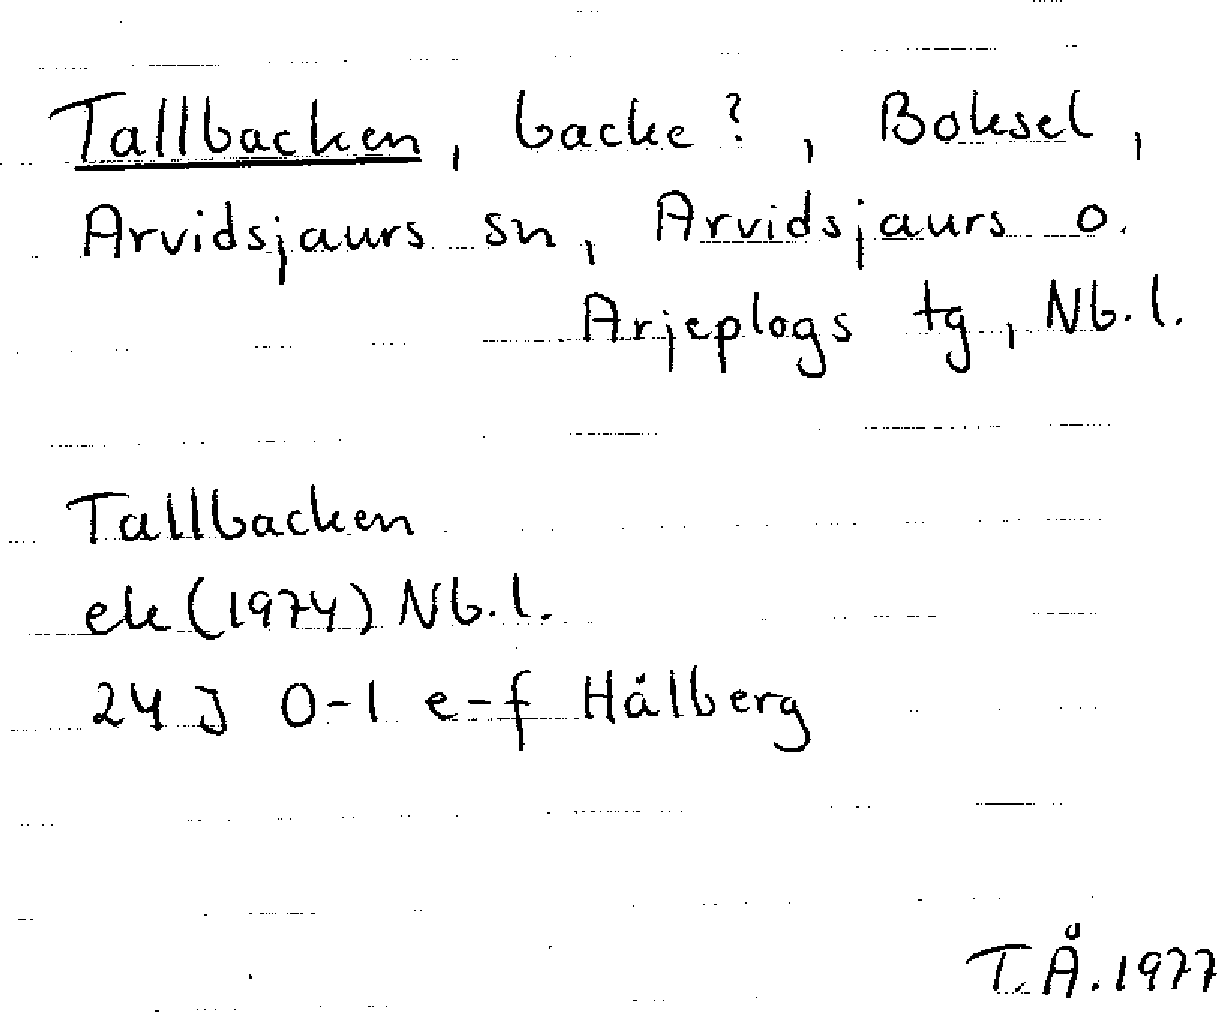 Tallbacken, backe?, Boksel,
Arvidsjaurs sn, Arvidsjaurs o.
Arjeplogs tg, Nb.l.
Tallbacken
ek (1974) Nb.l.
24 J 0-1 e-f Hålberg
T.Å. 1977